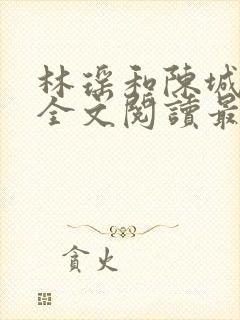 林瑶和陳城
全文閱讀最
貪火